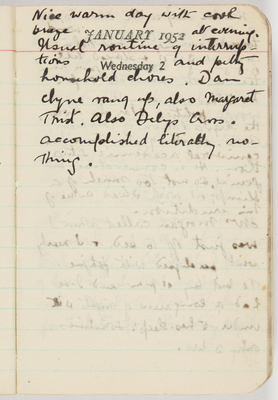 Nice warm day with cool
breze at evening.
JANUARY 1952
Usual routine of interrup-
tions and petty
Wednesday 2
household chores. Dam
Clyne rang up, also Margaret
Trist. Also Delys Cross.
accomplished literally no-
thing.